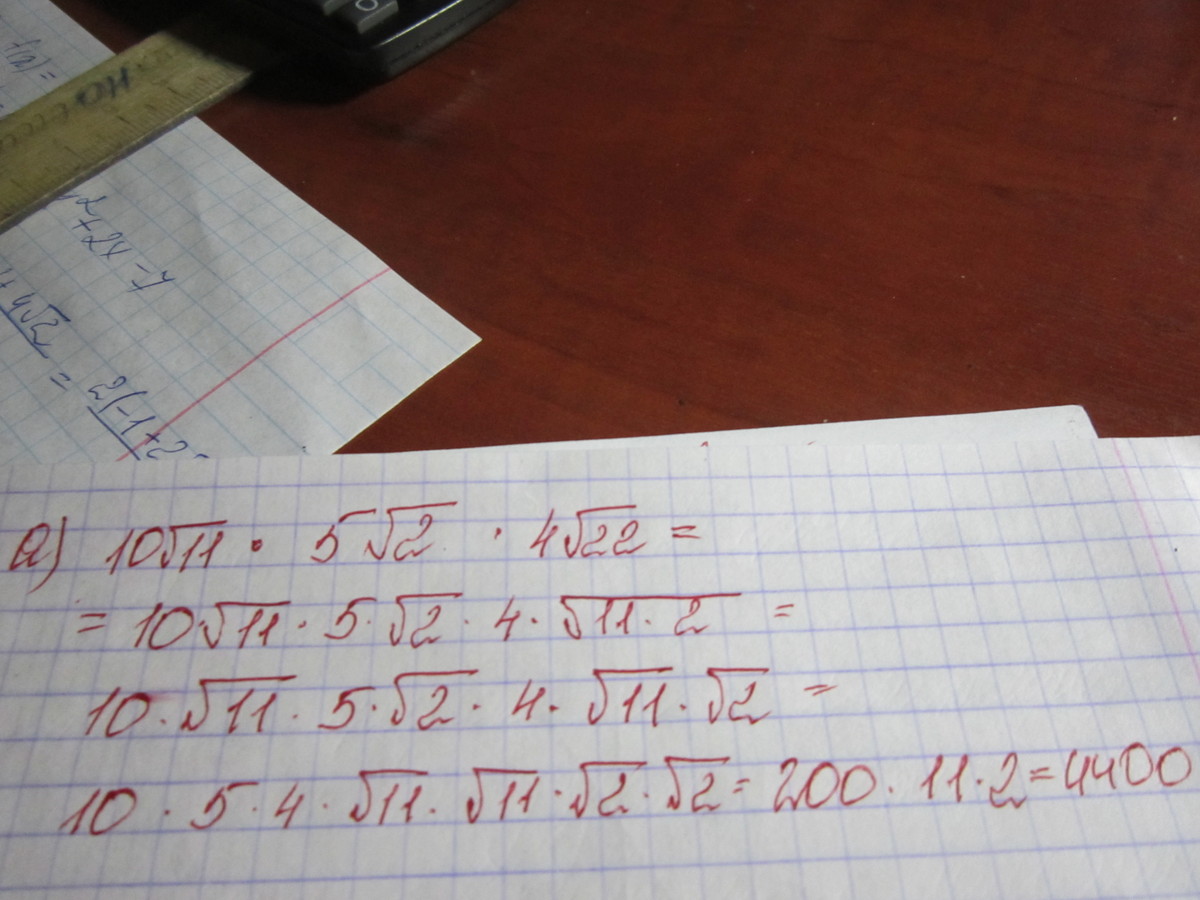 f(2)=
+2x=7
+4√2
=
2(-1+2
а) 10√11 · 5√2 · 4√22 =
= 10√11 · 5·√2 · 4·√11·2 =
10·√11 · 5·√2 · 4·√11·√2 =
10 · 5·4·√11·√11·√2·√2 = 200·11·2=4400